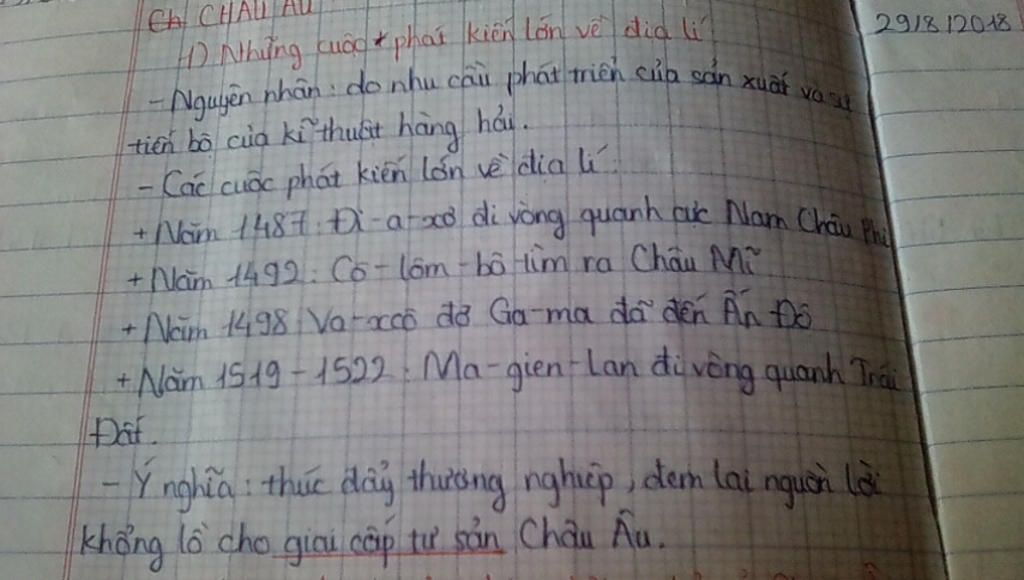 Ch CHÂU ÂU
29/8/2018
1) Những cuộc phát kiến lớn về địa lí
- Nguyên nhân: do nhu cầu phát triển của sản xuất và sự
tiến bộ của kĩ thuật hàng hải.
- Các cuộc phát kiến lớn về địa lí:
+ Năm 1487: Đi-a-xơ đi vòng quanh cực Nam Châu Phi
+ Năm 1492: Cô-lôm-bô tìm ra Châu Mĩ
+ Năm 1498 Va-xcô đơ Ga-ma đã đến Ấn Độ
+ Năm 1519-1522: Ma-gien-lan đi vòng quanh Trái
Đất.
- Ý nghĩa: thúc đẩy thương nghiệp, đem lại nguồn lời
khổng lồ cho giai cấp tư sản Châu Âu.